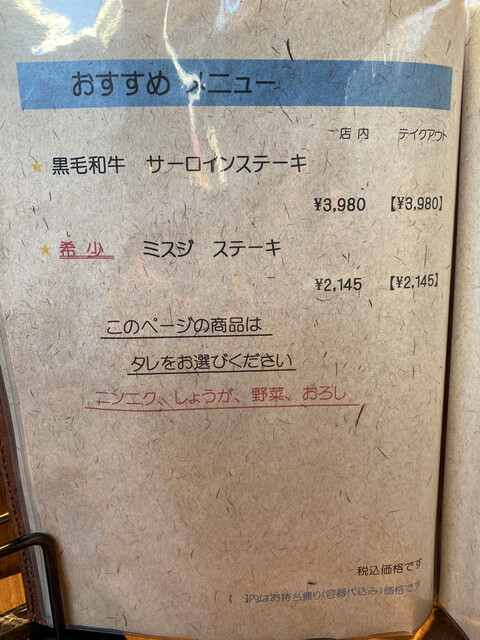 おすすめ メニュー
店内 テイクアウト
★ 黒毛和牛 サーロインステーキ
¥3,980 【¥3,980】
★ 希少 ミスジ ステーキ
¥2,145 【¥2,145】
このページの商品は
タレをお選びください
ニンニク、しょうが、野菜、おろし
税込価格です
【 】内はお持ち帰り(容器代込み)価格です